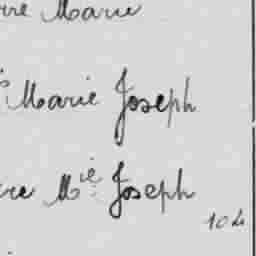 rre Marie
Marie Joseph
re Mie Joseph